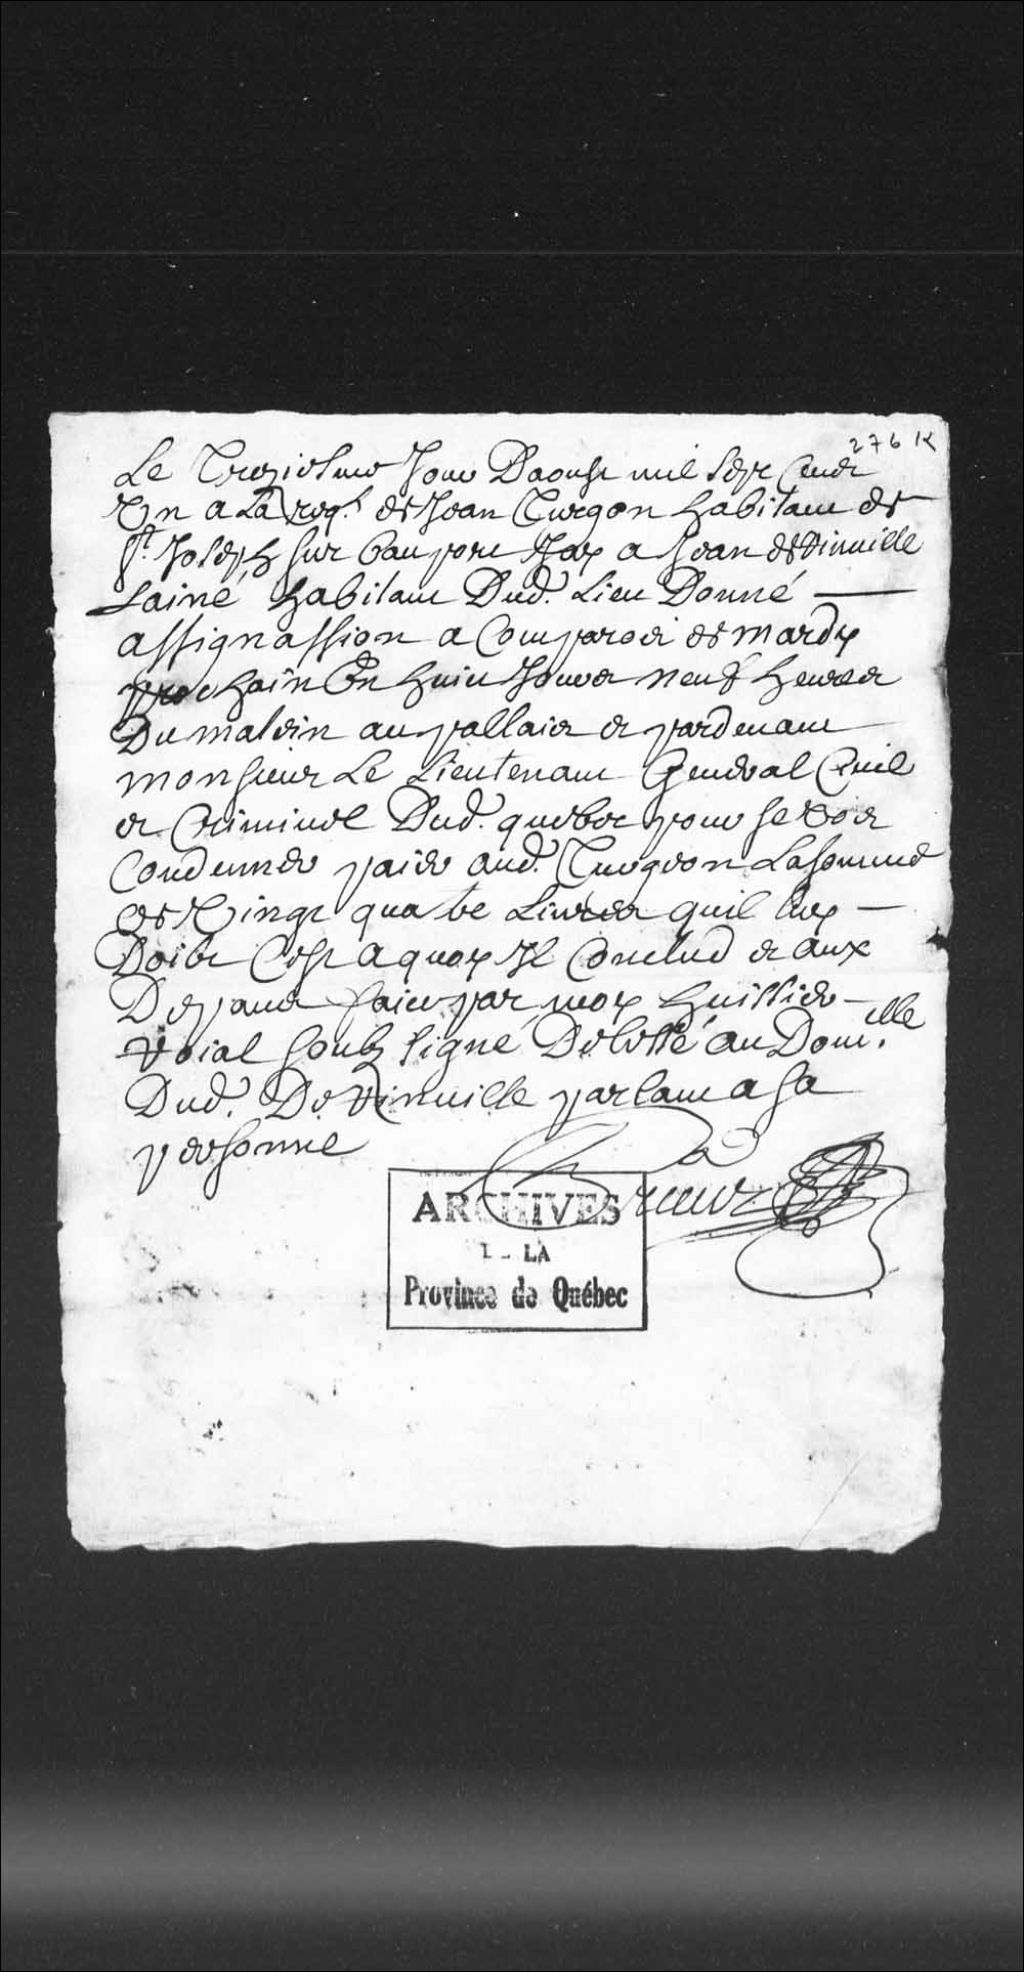 276 K
Le Treziesme Jour Daoust mil sept Cents
Un a La reqt. de Jean Turgon habitant de
St. Joseph sur bauport Jay a Jean de Vinuille
Lainé habitant Dud. Lieu Donné
assignassion a Comparoir de mardy
prochain En huict Jours neuf heures
Du matein au pallais et pardeuant
monsieur Le Lieutenant General Ciuil
et Criminel Dud. quebec pour se voir
Condemner paier aud. Turgeon La somme
de Vingt quatre Liures quil luy
Doibt Cest a quoy Il Conclud et aux
Depans faict par moy huissier
Roial soubz signé Delessé au Domille.
Dud. De Vinuille parlant a sa
personne
ARCHIVES
DE LA
Province de Québec